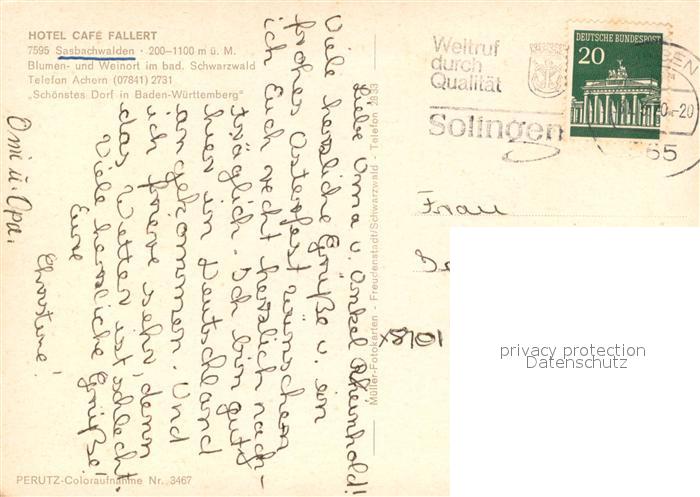 HOTEL CAFÉ FALLERT
7595 Sasbachwalden · 200-1100 m ü. M.
Blumen- und Weinort im bad. Schwarzwald
Telefon Achern (07841) 2731
„Schönstes Dorf in Baden-Württemberg“
Liebe Oma u. Onkel Rheinhold!
Viele herzliche Grüße u. ein
frohes Osterfest wünschen
ich Euch recht herzlich nach-
träglich. Ich bin gut
hier in Deutschland
angekommen. Und
ich friere sehr, denn
das Wetter ist schlecht.
Viele herzliche Grüße!
Eure
Christine!
Omi u. Opa.
PERUTZ-Coloraufnahme Nr. 3467
Müller-Fotokarten - Freudenstadt/Schwarzwald - Telefon 2933
Weltruf
durch
Qualität
Solingen
DEUTSCHE BUNDESPOST
20
-20
565
Frau
x8701
privacy protection
Datenschutz